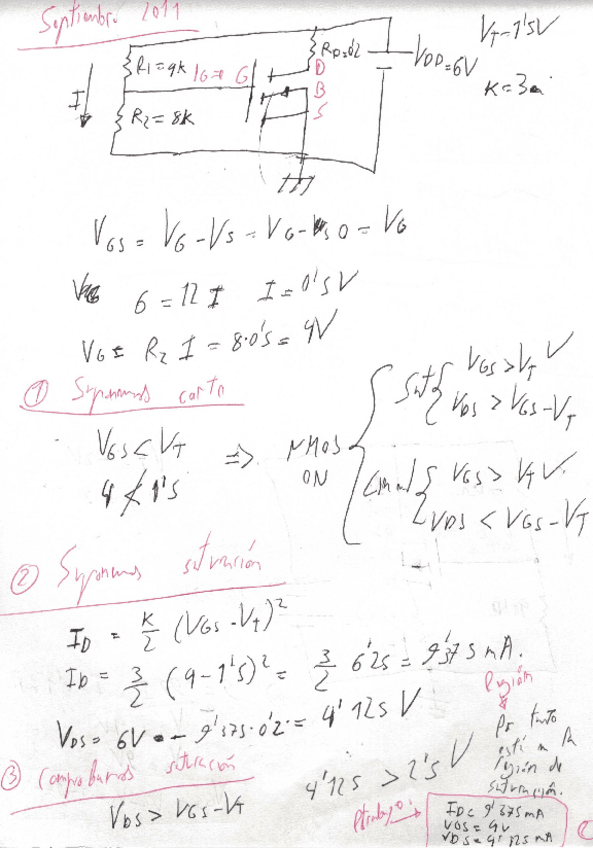 Septiembre 2011
R1=4k
IG=0
G
RD=0'2
D
B
S
VDD=6V
VT=1'5V
K=3m
I
R2=8k
VGS = VG-VS = VG-0 = VG
6 = 12 I I = 0'5V
VG = R2 I = 8·0'5 = 4V
① Suponemos corte
VGS < VT
4 ≮ 1'5
⇒ NMOS
ON
Sat { VGS > VT ✓
VDS > VGS-VT
Lineal { VGS > VT ✓
VDS < VGS-VT
② Suponemos saturación
ID = K/2 (VGS-VT)²
ID = 3/2 (4-1'5)² = 3/2 6'25 = 9'375 mA.
VDS = 6V - 9'375·0'2 = 4'125 V
③ Comprobamos saturación
VDS > VGS-VT
4'125 > 2'5 V
Región
Por tanto
está en la
región de
saturación.
Pto trabajo:
ID = 9'375 mA
VGS = 4V
VDS = 4'125 mA